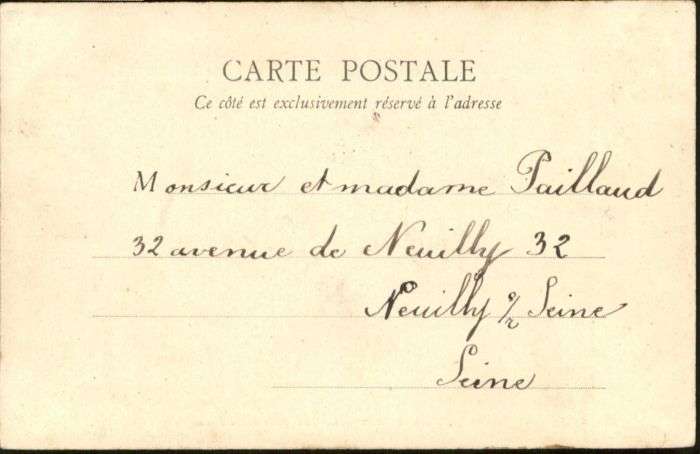 CARTE POSTALE
Ce côté est exclusivement réservé à l'adresse
Monsieur et madame Paillaud
32 avenue de Neuilly 32
Neuilly s/r Seine
Seine